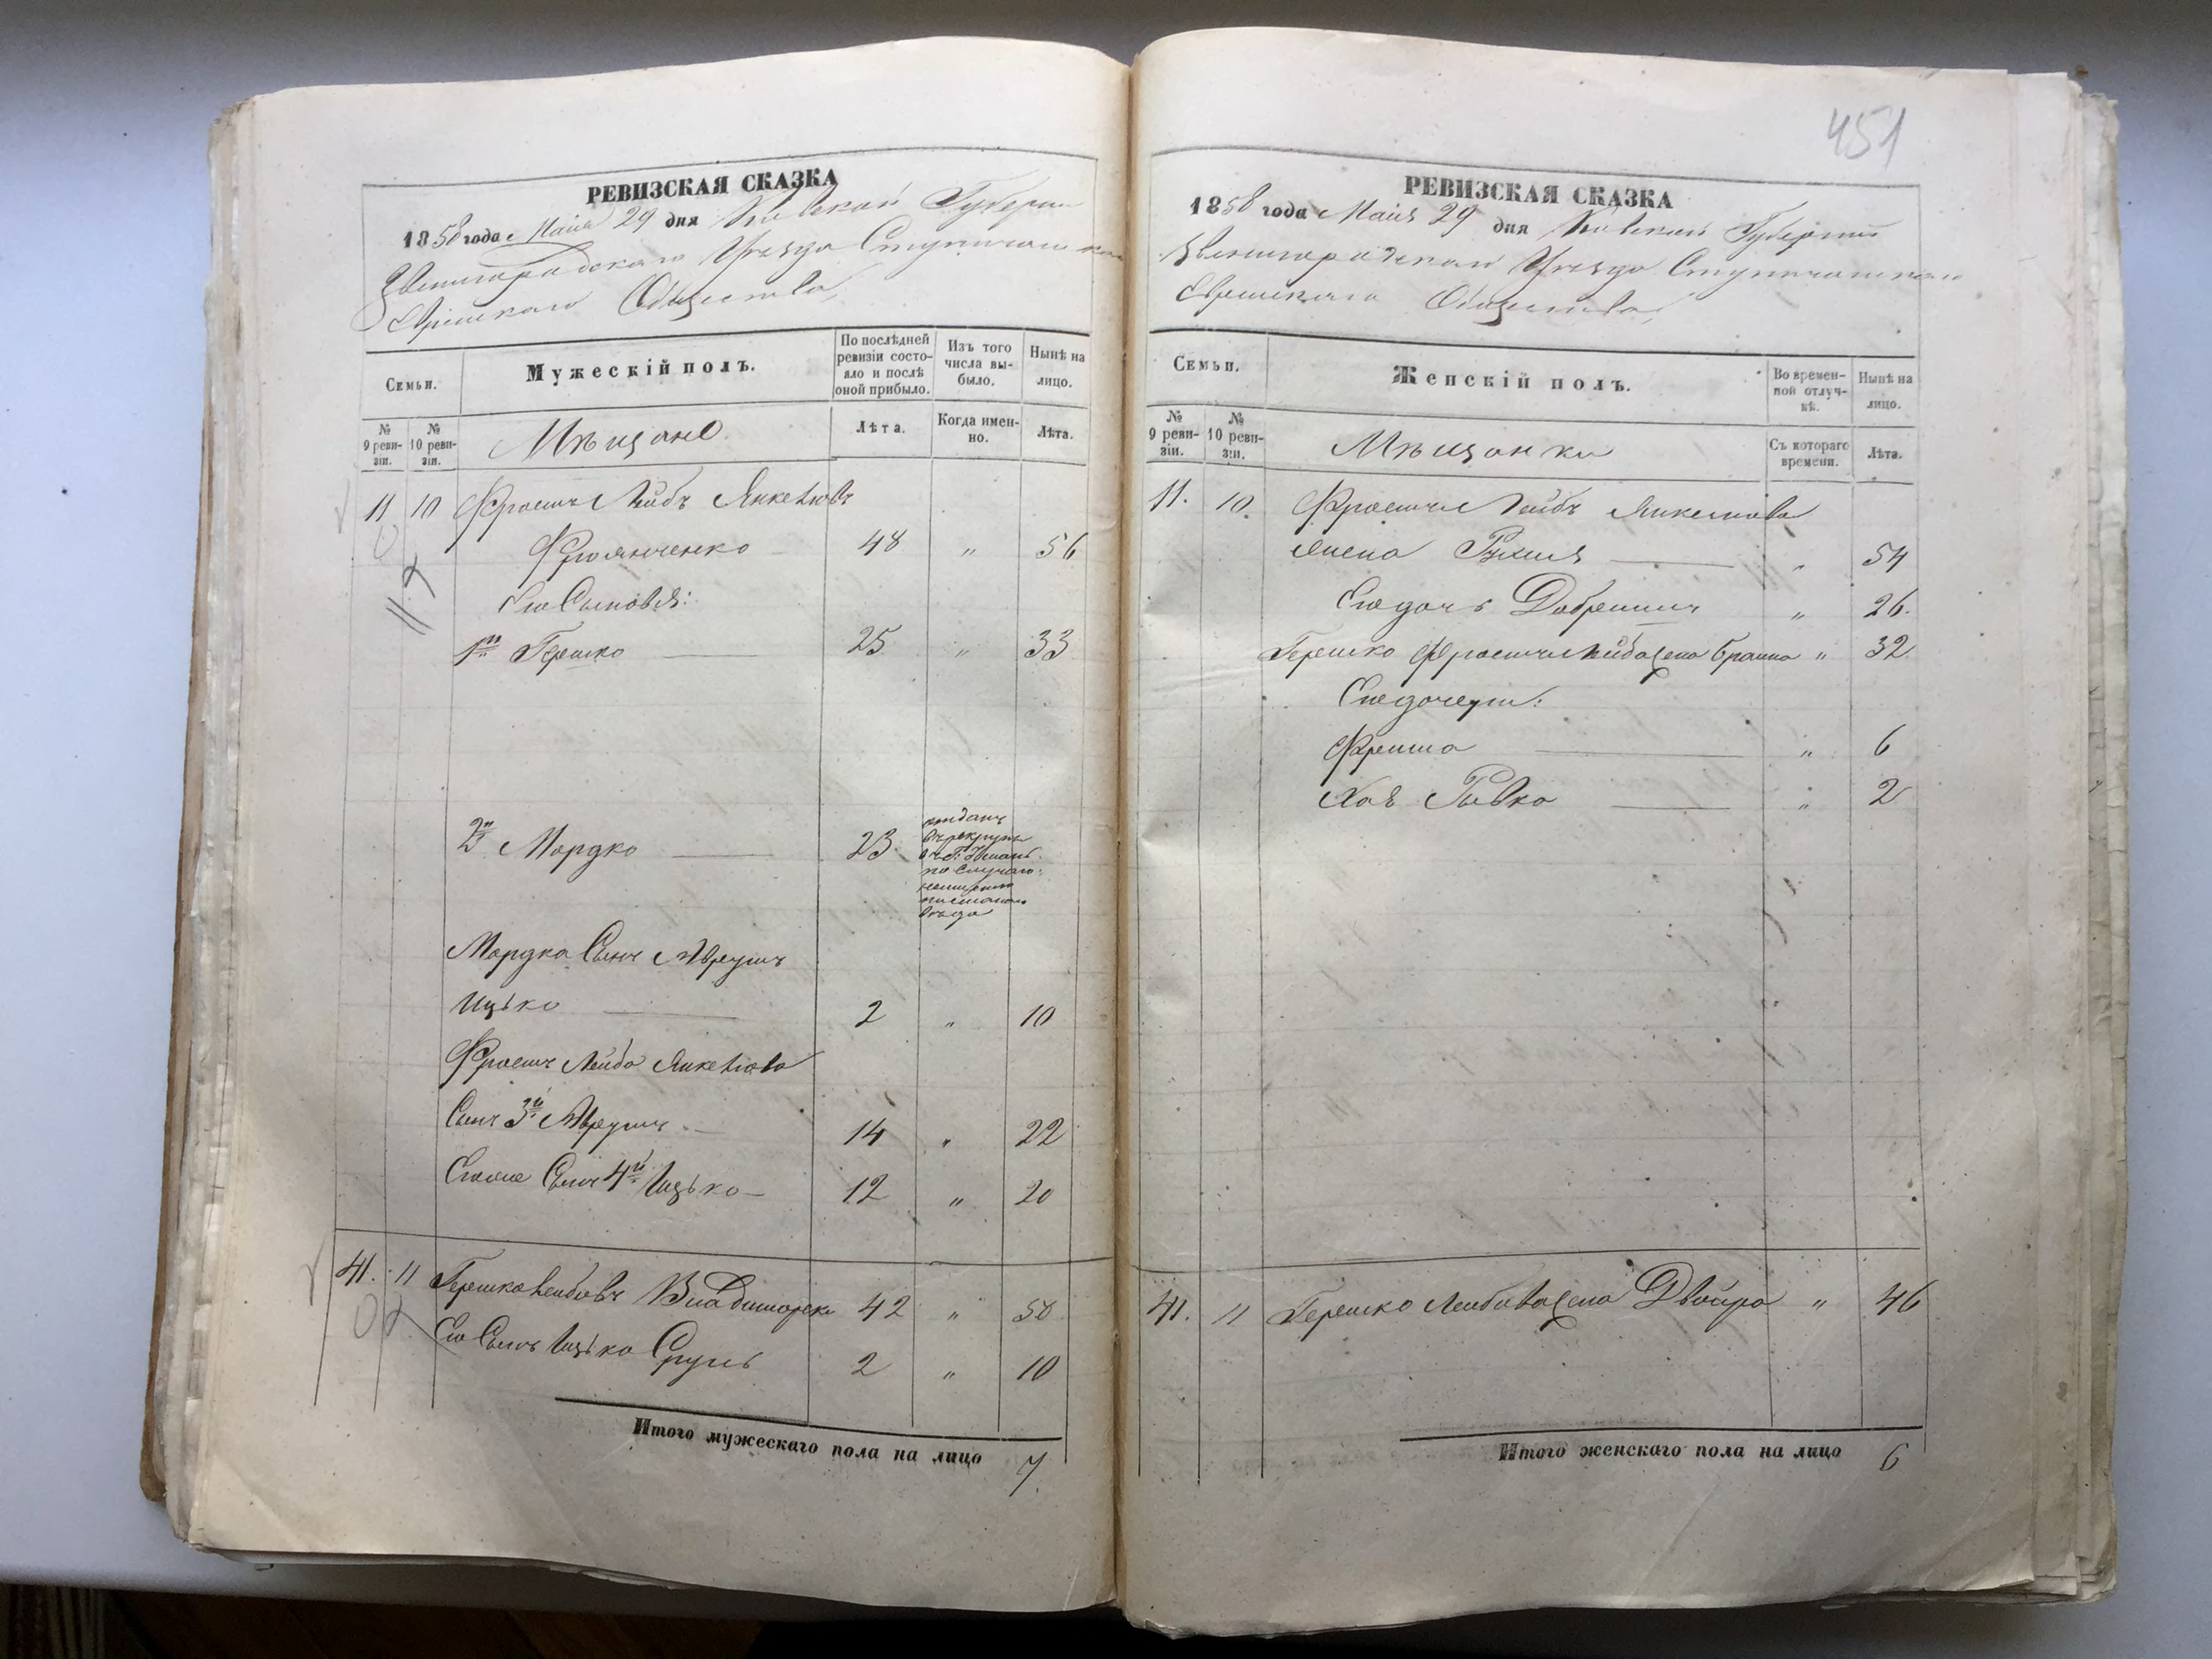 РЕВИЗСКАЯ СКАЗКА
1858 года Маія 29 дня Кіевской Губерніи
Звенигородскаго Уѣзда
Еврейскаго Общества
Семьи.
Мужескій полъ.
По послѣдней ревизіи состояло и послѣ оной прибыло.
Изъ того числа выбыло.
Нынѣ на лицо.
№ 9 ревизіи.
№ 10 ревизіи.
Мѣщане
Лѣта.
Когда именно.
Лѣта.
11 10 Фроимъ Лейбъ Янкелювъ
48 " 56
Его Сыновья:
1й Гершко 25 " 33
2й Мордко 23 отданъ въ рекруты
по случаю
Мордка Сынъ Аврумъ
Ицько 2 " 10
Фроимъ Лейба Янкелюва
Сынъ 3й Аврумъ 14 " 22
Сынъ 4й Ицько 12 " 20
41. 11 Гершко Лейбовъ 42 " 50
Его Сынъ Ицько Сруль 2 " 10
Итого мужескаго пола на лицо 7
451
РЕВИЗСКАЯ СКАЗКА
1858 года Маія 29 дня Кіевской Губерніи
Звенигородскаго Уѣзда
Еврейскаго Общества
Семьи.
Женскій полъ.
Во временной отлучкѣ.
Нынѣ на лицо.
№ 9 ревизіи.
№ 10 ревизіи.
Мѣщанки
Съ котораго времени.
Лѣта.
11. 10. Фроимъ Лейбъ Янкелюва
жена Рухля " 54
Его дочь " 26.
Гершко Фроимъ Лейба жена " 32
Его дочери:
" 6
Хая Рывка " 2
41. 11 Гершко Лейбова жена Двойра " 46
Итого женскаго пола на лицо 6